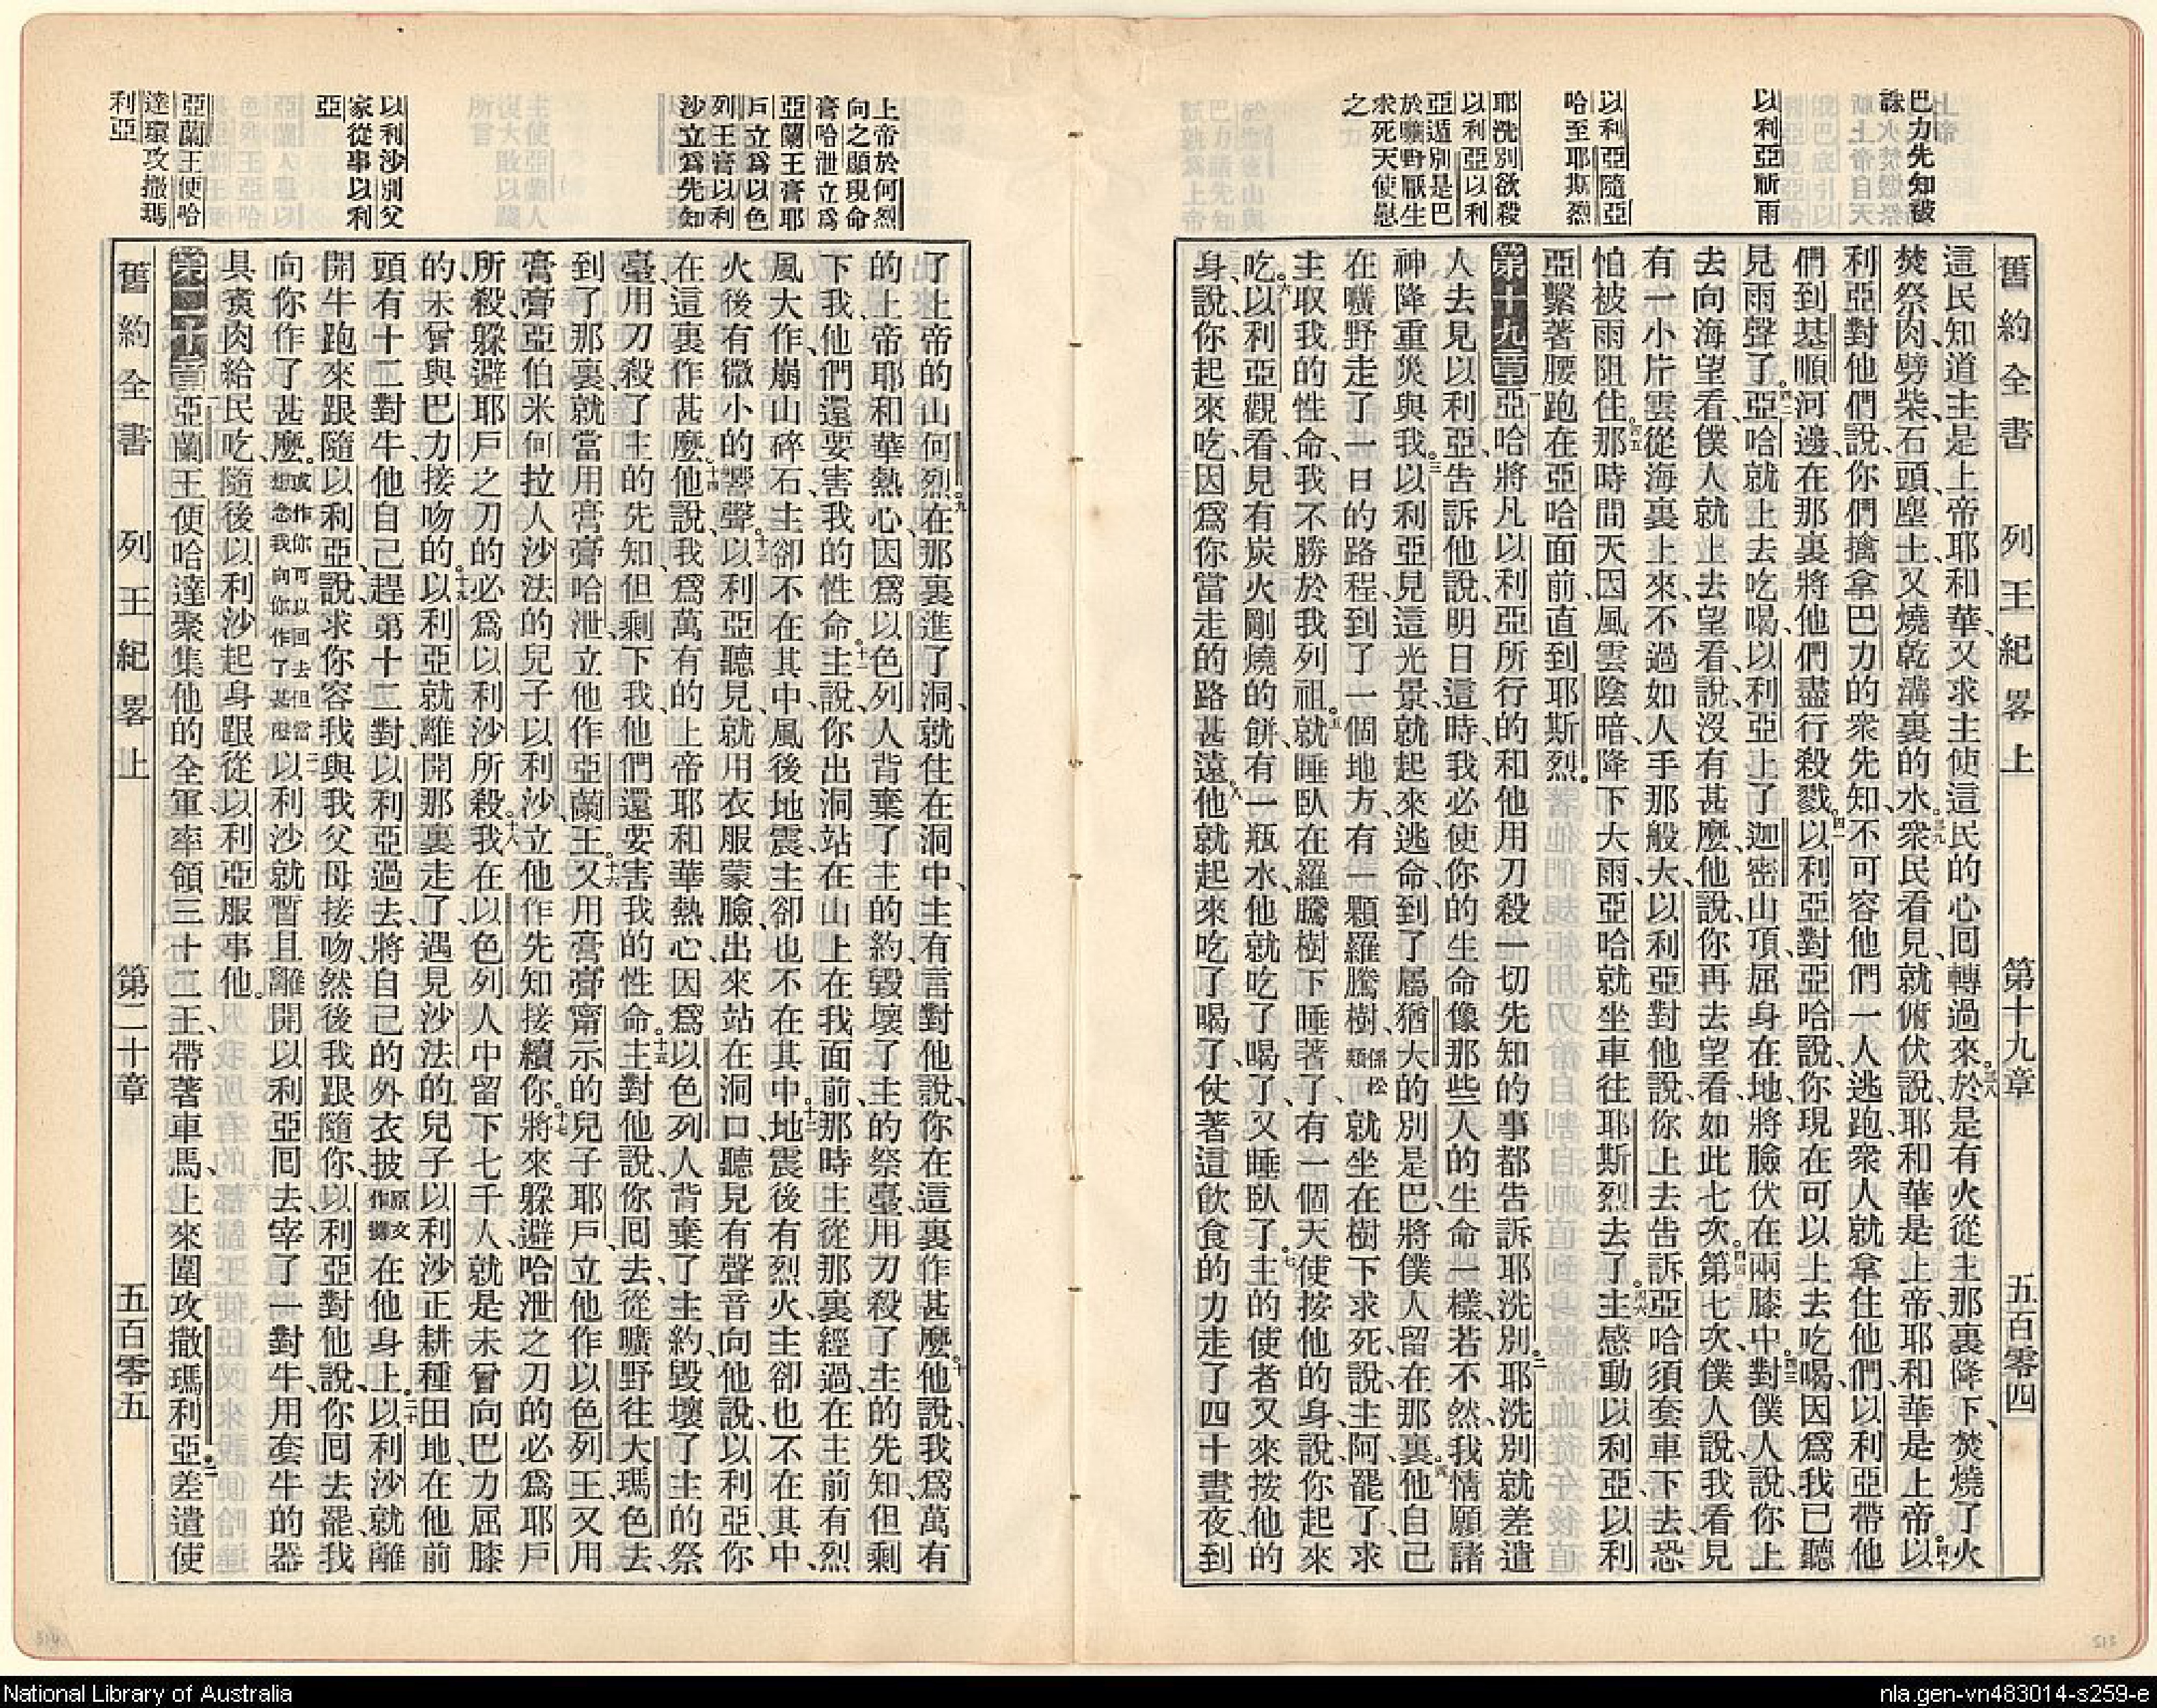 巴力先知被
誅
以利亞祈雨
以利亞隨亞
哈至耶斯烈
耶洗別欲殺
以利亞以利
亞遁別是巴
於曠野厭生
求死天使慰
之
舊約全書 列王紀畧上 第十九章 五百零四
這民知道主是上帝耶和華、又求主使這民的心回轉過來。三八於是有火從主那裏降下、焚燒了火
焚祭肉、劈柴、石頭、塵土、又燒乾溝裏的水。三九衆民看見、就俯伏說、耶和華是上帝、耶和華是上帝。四十以
利亞對他們說、你們擒拿巴力的衆先知、不可容他們一人逃跑、衆人就拿住他們、以利亞帶他
們到基順河邊、在那裏將他們盡行殺戮。四一以利亞對亞哈說、你現在可以上去吃喝、因爲我已聽
見雨聲了。四二亞哈就上去吃喝、以利亞上了迦密山頂、屈身在地、將臉伏在兩膝中。四三對僕人說、你上
去向海望看、僕人就上去望看、說沒有甚麼、他說、你再去望看、如此七次。四四第七次、僕人說、我看見
有一小片雲從海裏上來、不過如人手那般大、以利亞對他說、你上去告訴亞哈須套車下去、恐
怕被雨阻住。四五那時間天因風雲陰暗、降下大雨、亞哈就坐車往耶斯烈去了。四六主感動以利亞、以利
亞繫著腰、跑在亞哈面前、直到耶斯烈。
第十九章 一亞哈將凡以利亞所行的、和他用刀殺一切先知的事、都告訴耶洗別。二耶洗別就差遣
人去見以利亞、告訴他說、明日這時、我必使你的生命像那些人的生命一樣、若不然、我情願諸
神降重災與我。三以利亞見這光景、就起來逃命、到了屬猶大的別是巴、將僕人留在那裏。四他自己
在曠野走了一日的路程、到了一個地方、有一顆羅騰樹、係松類就坐在樹下求死、說、主阿、罷了、求
主取我的性命、我不勝於我列祖。五就睡臥在羅騰樹下睡著了、有一個天使按他的身、說、你起來
吃。六以利亞觀看、見有炭火剛燒的餅、有一瓶水、他就吃了喝了、又睡臥了。七主的使者又來按他的
身、說、你起來吃、因爲你當走的路甚遠。八他就起來吃了喝了、仗著這飮食的力、走了四十晝夜、到
上帝於何烈
向之顯現命
膏哈泄立爲
亞蘭王膏耶
戶立爲以色
列王膏以利
沙立爲先知
以利沙別父
家從事以利
亞
亞蘭王便哈
達環攻撒瑪
利亞
了上帝的山何烈。九在那裏進了洞、就住在洞中、主有言對他說、你在這裏作甚麼。十他說、我爲萬有
的上帝耶和華熱心、因爲以色列人背棄了主的約、毀壞了主的祭臺、用刀殺了主的先知、但剩
下我、他們還要害我的性命。十一主說、你出洞站在山上在我面前、那時主從那裏經過、在主前有烈
風大作、崩山碎石、主卻不在其中、風後地震、主卻也不在其中。十二地震後有烈火、主卻也不在其中、
火後有微小的響聲。十三以利亞聽見、就用衣服蒙臉、出來站在洞口、聽見有聲音向他說、以利亞、你
在這裏作甚麼。十四他說、我爲萬有的上帝耶和華熱心、因爲以色列人背棄了主約、毀壞了主的祭
臺、用刀殺了主的先知、但剩下我、他們還要害我的性命。十五主對他說、你回去從曠野往大瑪色去、
到了那裏、就當用膏膏哈泄、立他作亞蘭王。十六又用膏膏甯示的兒子耶戶、立他作以色列王、又用
膏膏亞伯米何拉人沙法的兒子以利沙、立他作先知接續你。十七將來躲避哈泄之刀的、必爲耶戶
所殺、躲避耶戶之刀的、必爲以利沙所殺。十八我在以色列人中留下七千人、就是未曾向巴力屈膝
的、未曾與巴力接吻的。十九以利亞就離開那裏走了、遇見沙法的兒子以利沙正耕種田地、在他前
頭有十二對牛、他自己趕第十二對、以利亞過去將自己的外衣披原文作擲在他身上。二十以利沙就離
開牛、跑來跟隨以利亞、說、求你容我與我父母接吻、然後我跟隨你、以利亞對他說、你回去罷、我
向你作了甚麼。或作你可以回去但當想念我向你作了甚麼二一以利沙就暫且離開以利亞回去、宰了一對牛、用套牛的器
具煑肉給民吃、隨後以利沙起身跟從以利亞、服事他。
第二十章 亞蘭王便哈達聚集他的全軍、率領三十二王、帶著車馬、上來圍攻撒瑪利亞。二差遣使
舊約全書 列王紀畧上 第二十章 五百零五
National Library of Australia
nla.gen-vn483014-s259-e